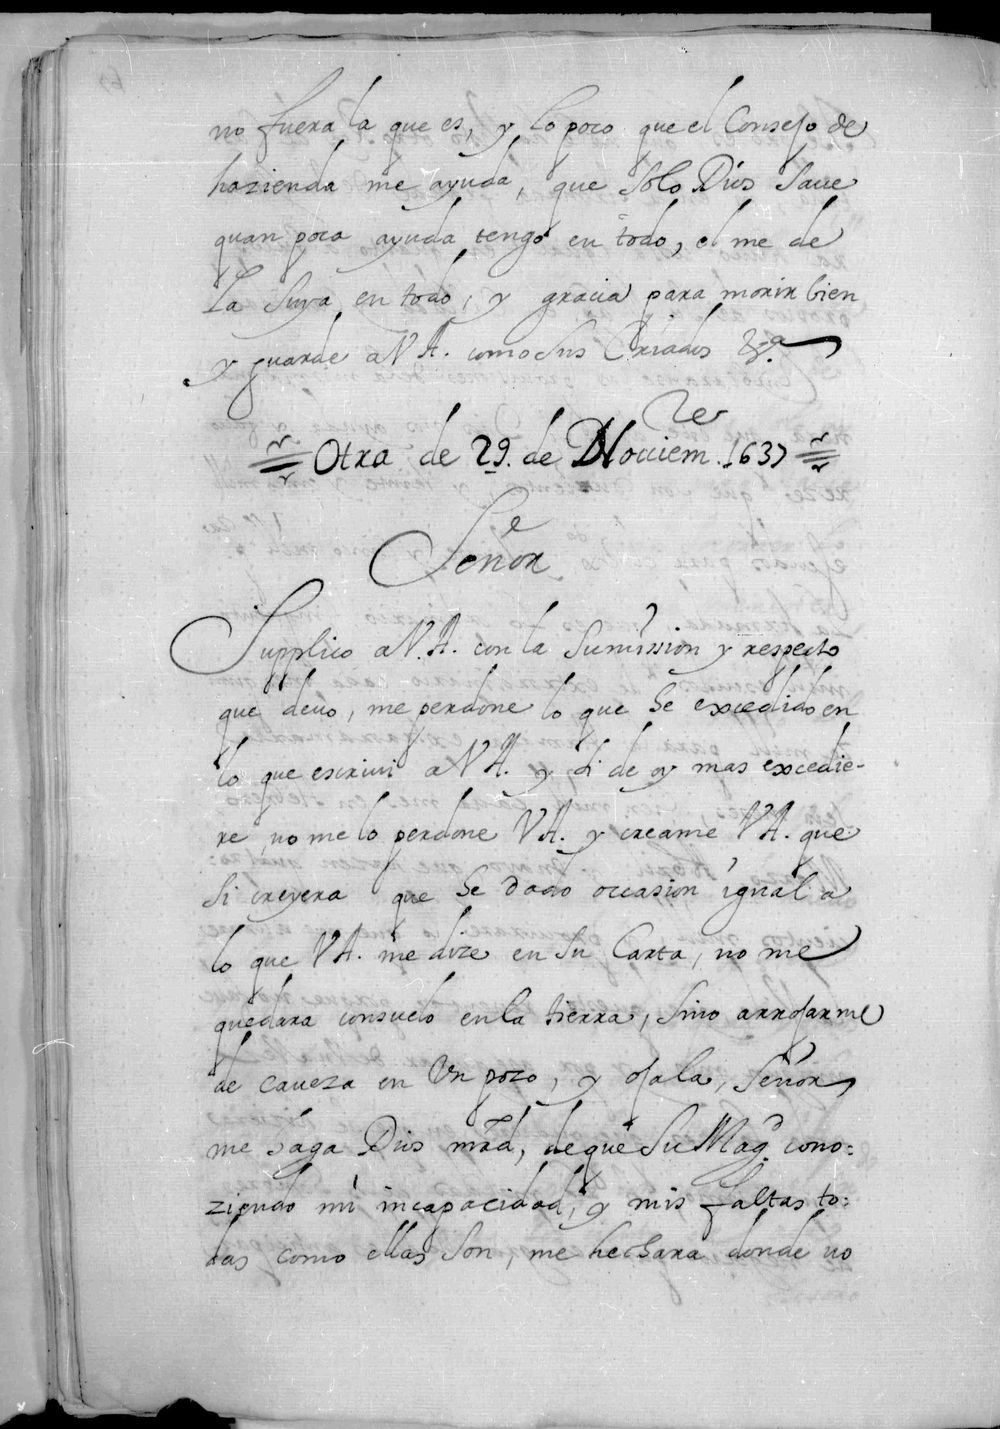 no fuera la que es, y lo poco que el Consejo de
hazienda me ayuda, que solo Dios saue
quan poca ayuda tengo en todo, el me de
la suya en todo, y gracia para morir bien
y guarde a V A. como sus Criados &.ª
Otra de 29. de Nouiem.bre 1637
Señor
Supplico a V. A. con la sumission y respecto
que deuo, me perdone lo que he excedido en
lo que escriui a V A. y si de oy mas excedie-
re, no me lo perdone V A. y creame V A. que
si creyera que he dado occasion igual a
lo que V A. me dize en su Carta, no me
quedara consuelo en la tierra, sino arrojarme
de caueza en Un pozo, y ojala, Señor,
me haga Dios mrd, de que Su Magd. cono:
ziendo mi incapacidad, y mis faltas to:
das como ellas son, me hechara donde no